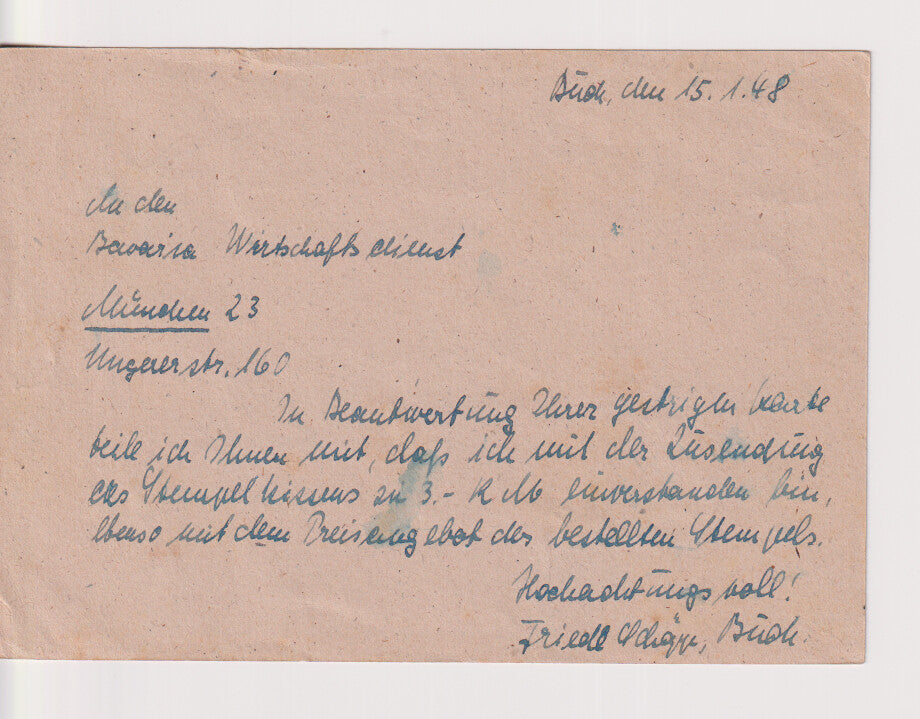 Buch, den 15.1.48
An den
Bavaria Wirtschaftsdienst
München 23
Ungererstr. 160
In Beantwortung Ihrer gestrigen Karte
teile ich Ihnen mit, daß ich mit der Zusendung
des Stempelkissens zu 3.- RM einverstanden bin,
ebenso mit dem Preisangebot des bestellten Stempels.
Hochachtungsvoll!
Friedl Buch.